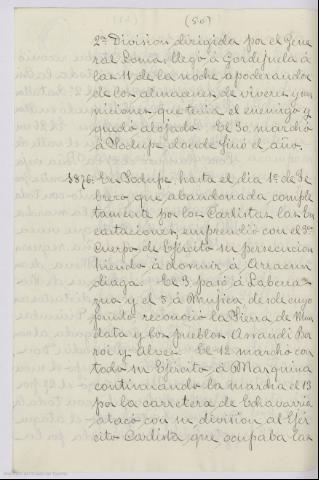 (50)
2ª Division dirigida por el Gene
ral Loma, llegó á Gordejuela á
las 11 de la noche apoderandose
de los almacenes de viveres y mu
niciones que tenia el enemigo y
quedó alojado. El 30 marchó
á Sodupe donde finó el año.
1876. En Sodupe, hasta el dia 1º de Fe
brero que abandonada comple
tamente por los Carlistas las En
cartaciones, emprendió con el 3er
Cuerpo de Ejército su persecucion
hiendo á dormir á Arracun
diaga. El 3 pasó á Labena
zua y el 5 á Mujica desde cuyo
punto reconoció la Sierra de Mun
data y los pueblos Arrandi Ba
roi y Alves. El 12 marchó con
todo su Ejército á Marquina
continuando la marcha el 13
por la carretera de Echavarria
atacó con su division al Ejér
cito Carlista que ocupaba las